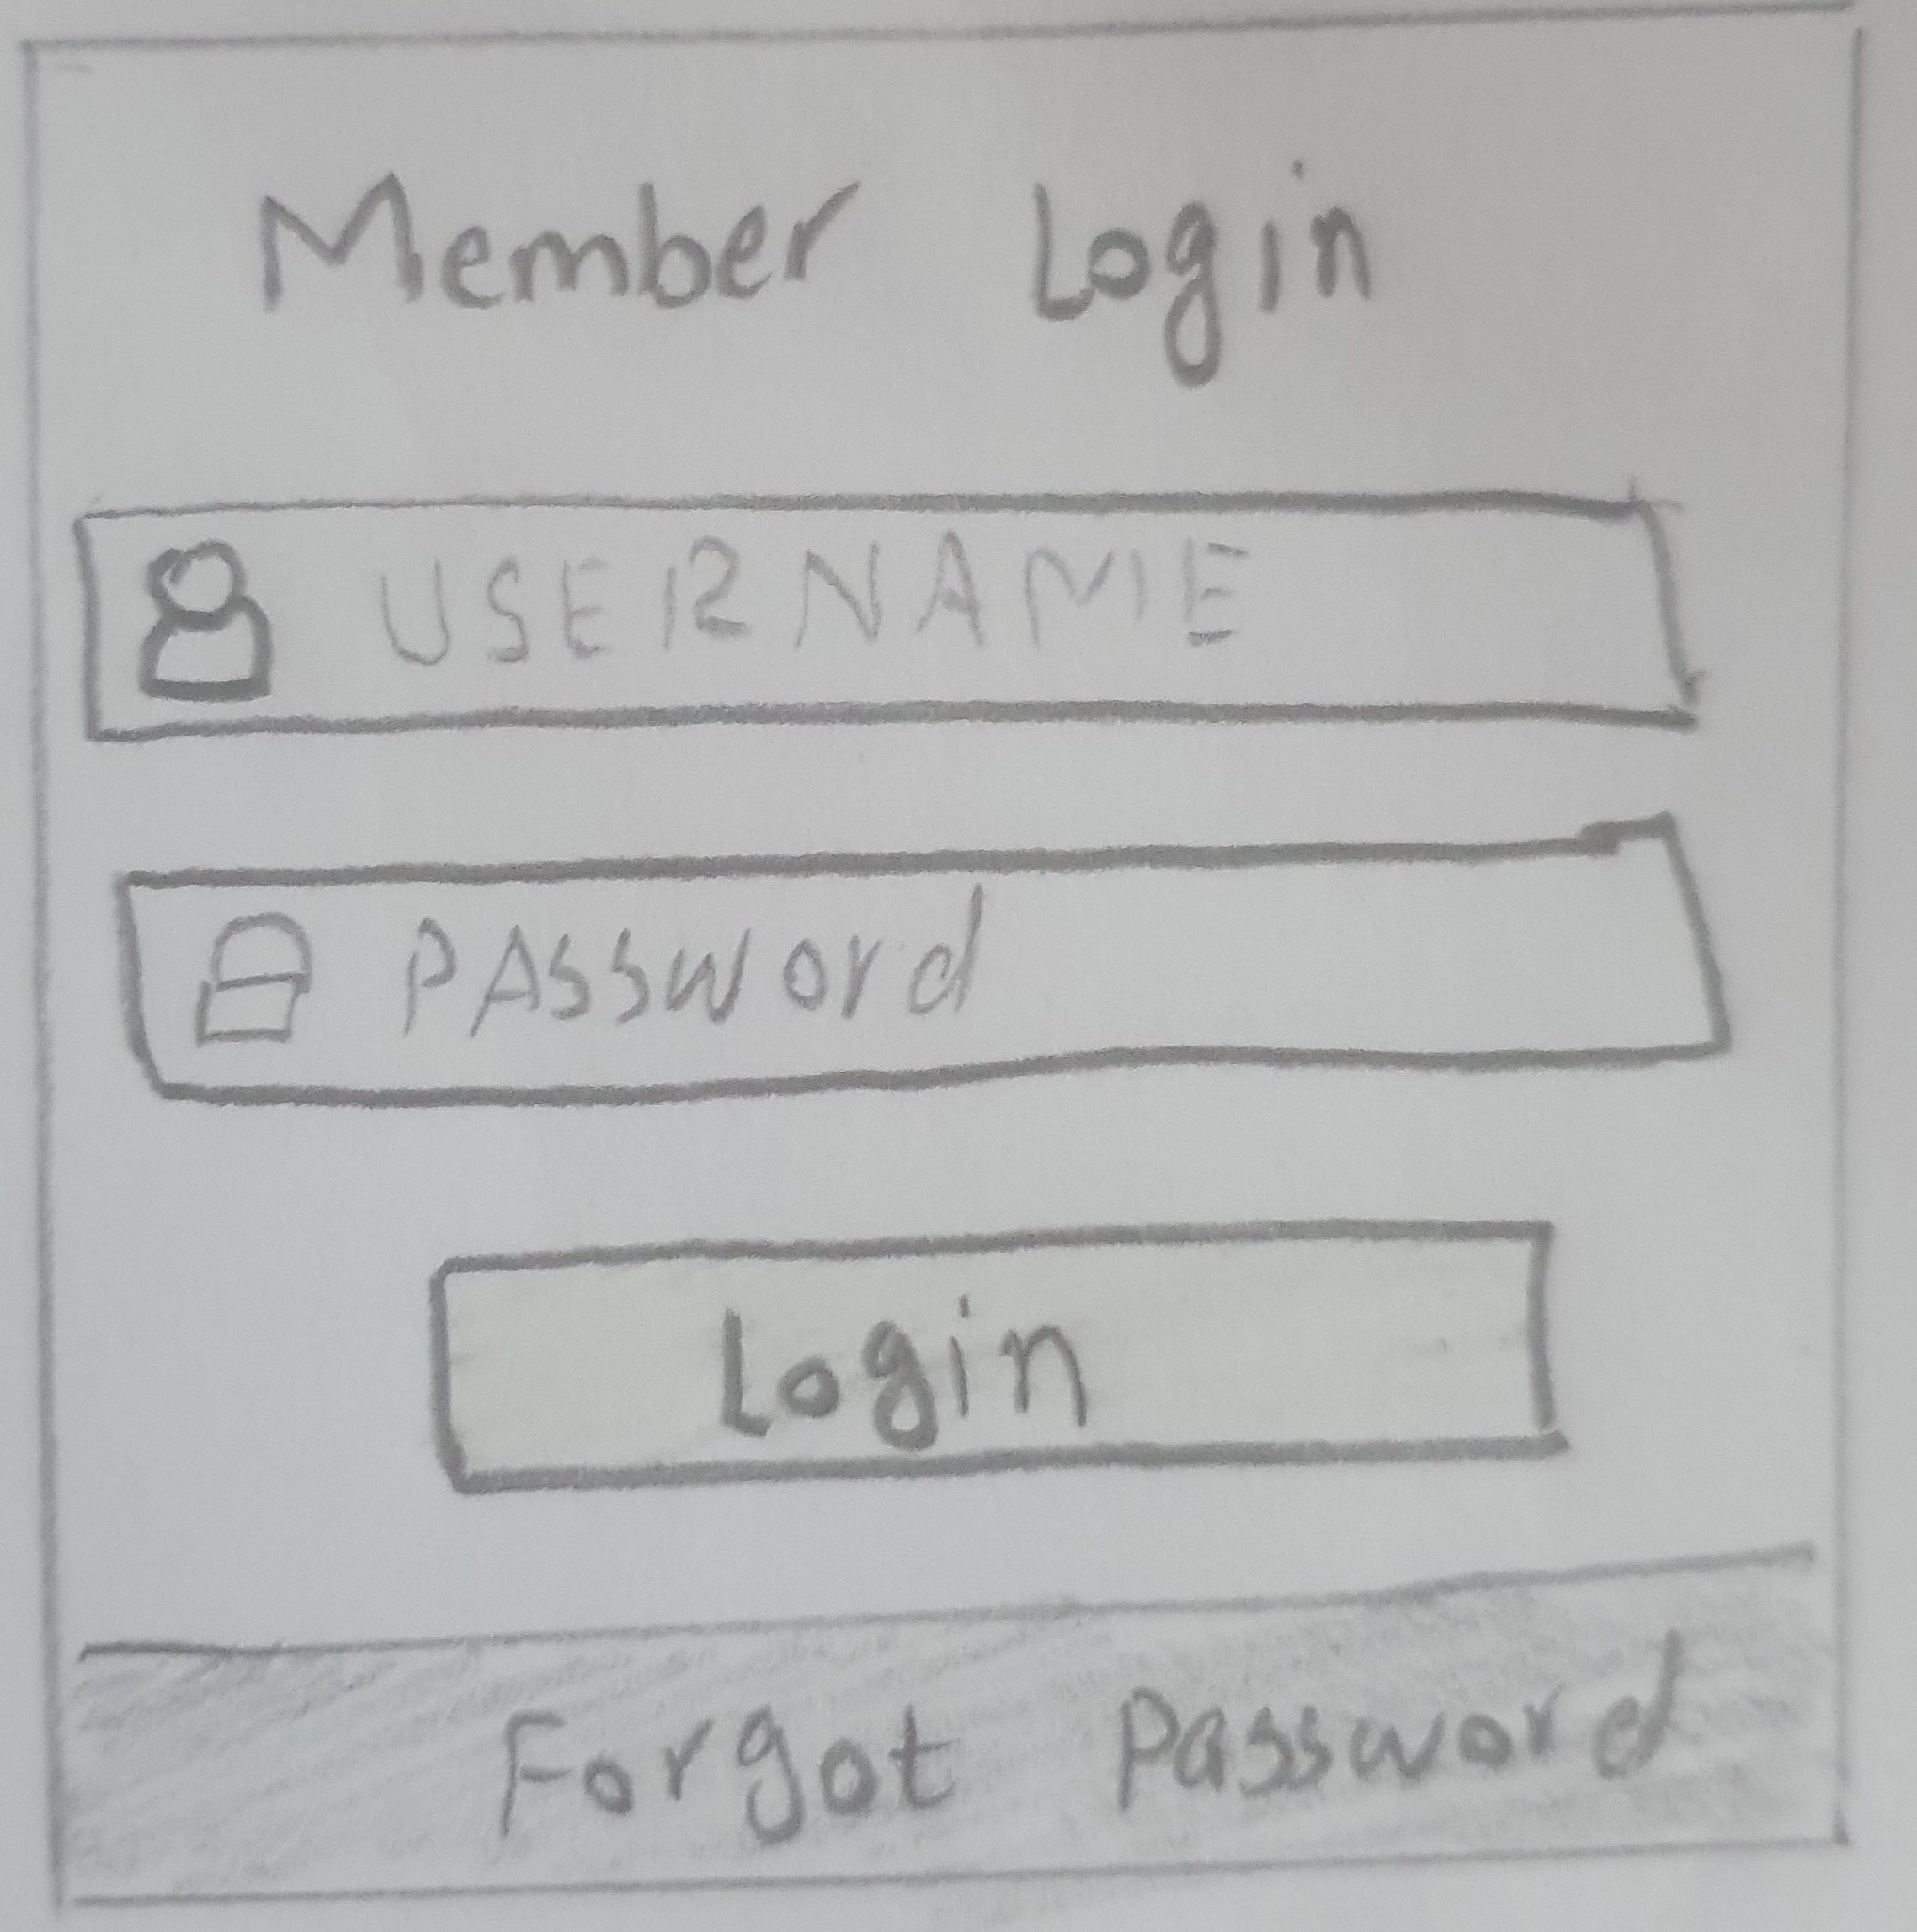 Member Login
USERNAME
PASSword
Login
Forgot Password